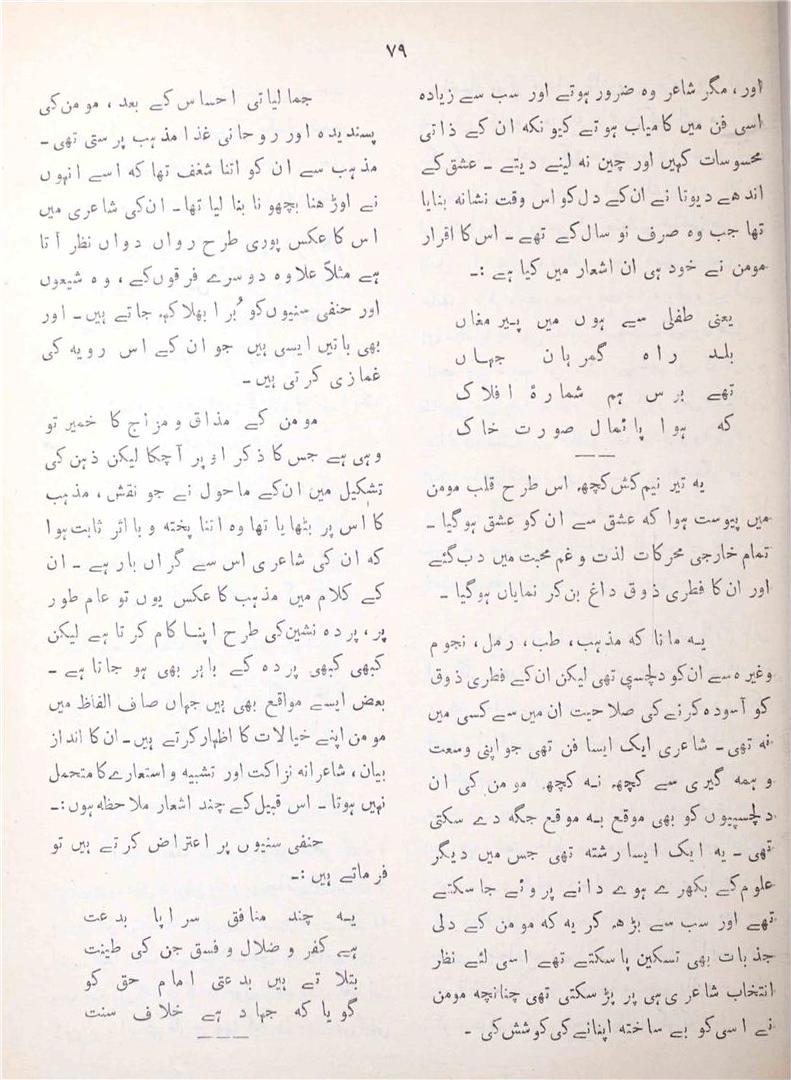 ۷۹
اور، مگر شاعر وہ ضرور ہوتے اور سب سے زیادہ
اسی فن میں کامیاب ہوتے کیونکہ ان کے ذاتی
محسوسات کہیں اور چین نہ لینے دیتے ۔ عشق کے
اندھے دیوتا نے ان کے دل کو اس وقت نشانہ بنایا
تھا جب وہ صرف نو سال کے تھے ۔ اس کا اقرار
مومن نے خود ہی ان اشعار میں کیا ہے :۔
یعنی طفلی سے ہوں میں پیر مغاں
بلد راہ گمرہان جہاں
تھے برس ہم شمارۂ افلاک
کہ ہوا پائمال صورت خاک
یہ تیر نیم کش کچھ اس طرح قلب مومن
میں پیوست ہوا کہ عشق سے ان کو عشق ہوگیا ۔
تمام خارجی محرکات لذت و غم محبت میں دب گئے
اور ان کا فطری ذوق داغ بن کر نمایاں ہوگیا ۔
یہ مانا کہ مذہب، طب، رمل، نجوم
وغیرہ سے ان کو دلچسپی تھی لیکن ان کے فطری ذوق
کو آسودہ کرنے کی صلاحیت ان میں سے کسی میں
نہ تھی ۔ شاعری ایک ایسا فن تھی جو اپنی وسعت
و ہمہ گیری سے کچھ نہ کچھ مومن کی ان
دلچسپیوں کو بھی موقع بہ موقع جگہ دے سکتی
تھی ۔ یہ ایک ایسا رشتہ تھی جس میں دیگر
علوم کے بکھرے ہوے دانے پروئے جاسکتے
تھے اور سب سے بڑھ کر یہ کہ مومن کے دلی
جذبات بھی تسکین پاسکتے تھے اسی لئے نظر
انتخاب شاعری ہی پر پڑ سکتی تھی چنانچہ مومن
نے اسی کو بے ساختہ اپنانے کی کوشش کی ۔
جمالیاتی احساس کے بعد، مومن کی
پسندیدہ اور روحانی غذا مذہب پرستی تھی ۔
مذہب سے ان کو اتنا شغف تھا کہ اسے انہوں
نے اوڑھنا بچھونا بنا لیا تھا ۔ ان کی شاعری میں
اس کا عکس پوری طرح رواں دواں نظر آتا
ہے مثلاً علاوہ دوسرے فرقوں کے، وہ شیعوں
اور حنفی سنیوں کو بُرا بھلا کہہ جاتے ہیں ۔ اور
بھی باتیں ایسی ہیں جو ان کے اس رویہ کی
غمازی کرتی ہیں ۔
مومن کے مذاق و مزاج کا خمیر تو
وہی ہے جس کا ذکر اوپر آچکا لیکن ذہن کی
تشکیل میں ان کے ماحول نے جو نقش، مذہب
کا اس پر بٹھایا تھا وہ اتنا پختہ و بااثر ثابت ہوا
کہ ان کی شاعری اس سے گراں بار ہے ۔ ان
کے کلام میں مذہب کا عکس یوں تو عام طور
پر، پردہ نشین کی طرح اپنا کام کرتا ہے لیکن
کبھی کبھی پردہ کے باہر بھی ہو جاتا ہے ۔
بعض ایسے مواقع بھی ہیں جہاں صاف الفاظ میں
مومن اپنے خیالات کا اظہار کرتے ہیں ۔ ان کا انداز
بیان، شاعرانہ نزاکت اور تشبیہ و استعارے کا متحمل
نہیں ہوتا ۔ اس قبیل کے چند اشعار ملاحظہ ہوں :۔
حنفی سنیوں پر اعتراض کرتے ہیں تو
فرماتے ہیں :۔
یہ چند منافق سراپا بدعت
ہے کفر و ضلال و فسق جن کی طینت
بتلاتے ہیں بدعتی امام حق کو
گویا کہ جہاد ہے خلاف سنت